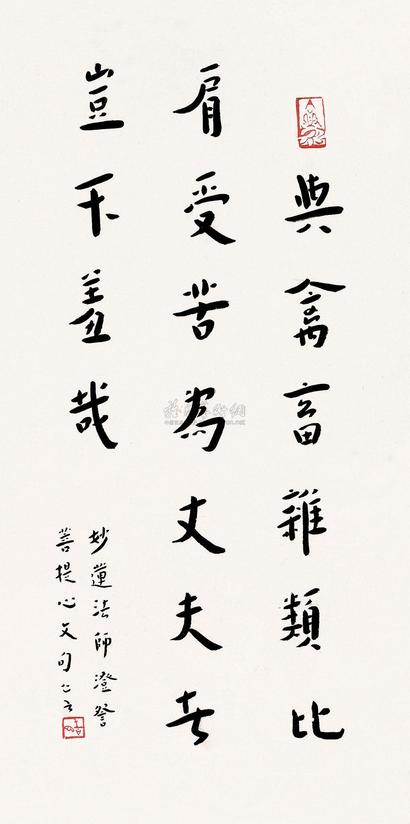 與禽畜雜類比
肩受苦為丈夫者
豈不羞哉
妙蓮法師澄督
菩提心文句